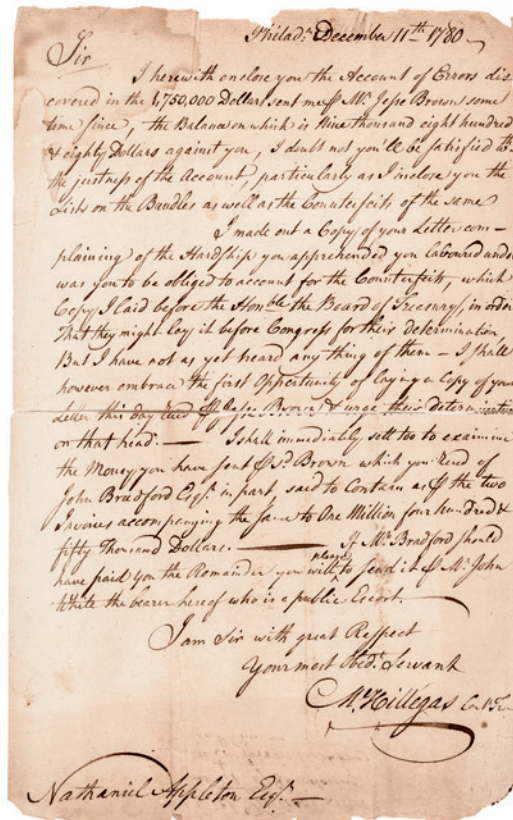 Philad.ª December 11th 1780
Sir
I herewith enclose you the Account of Errors dis
covered in the 1,750,000 Dollars sent me ⅌ Mr. Jesse Brown some
time since, the Balance on which is Nine thousand eight hundred
& eighty Dollars against you, I doubt not you'll be satisfied
the justness of the Account, particularly as I inclose you the
Lists on the Bundles as well as the Counterfeits of the same
I made out a Copy of your Letter com-
plaining of the Hardship you apprehended you laboured under
was you to be obliged to account for the Counterfeits, which
Copy I laid before the Honble the Board of Treasury, in order
That they might lay it before Congress for their Determination
But I have not as yet heard any thing of them - I shall
however embrace the first Opportunity of laying a Copy of your
Letter this day Recd ⅌ Jesse Brown & urge their Determination
on that head. — I shall immediately sett too to examine
the Money you have sent ⅌ sd. Brown which you Recd of
John Bradford Esqr. in part, said to Contain as ⅌ the two
Invoices accompanying the same to One Million four hundred &
fifty Thousand Dollars. — If Mr. Bradford should
have paid you the Remainder you will please to send it ⅌ Mr. John
White the bearer hereof who is a public Escort.
I am Sir with great Respect
Your most Obedt. Servant
M. Hillegas Cont. Trea
Nathaniel Appleton Esqr. —